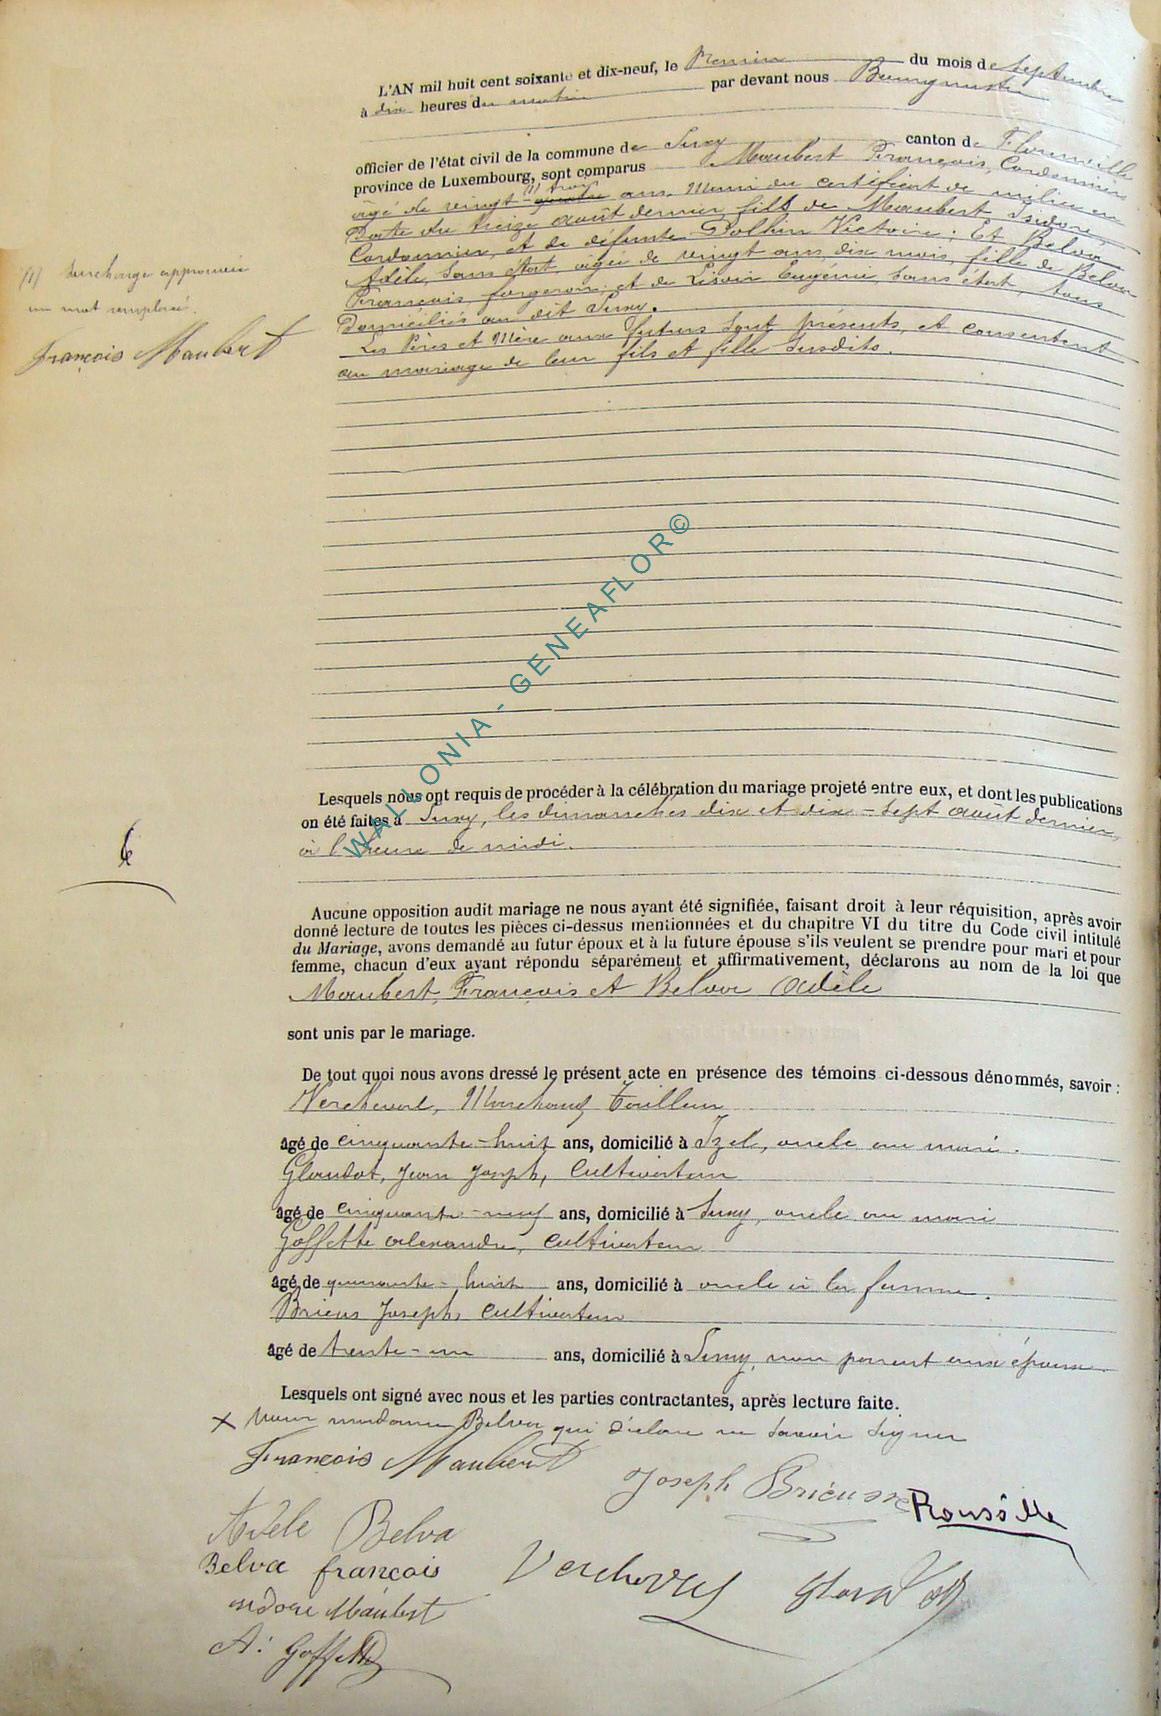 L'AN mil huit cent soixante et dix-neuf, le Premier du mois de Septembre
à dix heures du matin par devant nous Bourgmestre
officier de l'état civil de la commune de Suxy canton de Florenville
province de Luxembourg, sont comparus Maubert François, Cordonnier
âgé de vingt-quatre (1) trois ans, Muni du certificat de milice en
Date du treize août dernier, fils de Maubert Isidore,
Cordonnier, et de défunte Dolhin Victoire ; Et Belva
Adèle, Sans état, âgée de vingt ans, dix mois, fille de Belva
François, forgeron, et de Lisoir Eugénie, Sans état, tous
Domiciliés au dit Suxy.
Les Pères et Mère aux futurs Sont présents, et consentent
au mariage de leur fils et fille Susdits.
(1) Surcharge approuvée
un mot remplacé.
François Maubert
WALLONIA - GENEAFLOR©
Lesquels nous ont requis de procéder à la célébration du mariage projeté entre eux, et dont les publications
on été faites à Suxy, les dimanches dix et dix-Sept août dernier,
à l'heure de midi.
6
Aucune opposition audit mariage ne nous ayant été signifiée, faisant droit à leur réquisition, après avoir
donné lecture de toutes les pièces ci-dessus mentionnées et du chapitre VI du titre du Code civil intitulé
du Mariage, avons demandé au futur époux et à la future épouse s'ils veulent se prendre pour mari et pour
femme, chacun d'eux ayant répondu séparément et affirmativement, déclarons au nom de la loi que
Maubert, François et Belva Adèle
sont unis par le mariage.
De tout quoi nous avons dressé le présent acte en présence des témoins ci-dessous dénommés, savoir :
Vercheval, Marchand Tailleur
âgé de cinquante-huit ans, domicilié à Izel, oncle au mari.
Glaudot, Jean Joseph, Cultivateur
âgé de cinquante-neuf ans, domicilié à Suxy, oncle au mari
Goffette Alexandre, Cultivateur
âgé de quarante-huit ans, domicilié à oncle à la femme.
Brieus Joseph, Cultivateur
âgé de trente-un ans, domicilié à Suxy, non parent aux époux.
Lesquels ont signé avec nous et les parties contractantes, après lecture faite.
madame Belva qui déclare ne Savoir Signer
François Maubert
Joseph Brieusse
Adèle Belva
Belva françois
Vercheval
Isidore Maubert
A. Goffette